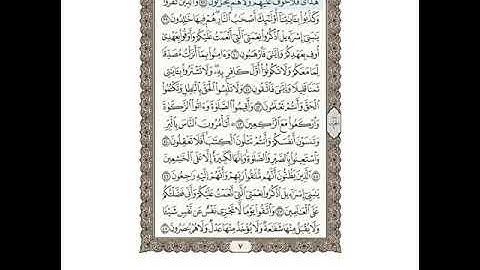 هُدَايَ فَلَا خَوْفٌ عَلَيْهِمْ وَلَا هُمْ يَحْزَنُونَ ٣٨ وَالَّذِينَ كَفَرُوا
وَكَذَّبُوا بِآيَاتِنَا أُولَٰئِكَ أَصْحَابُ النَّارِ هُمْ فِيهَا خَالِدُونَ ٣٩
يَا بَنِي إِسْرَائِيلَ اذْكُرُوا نِعْمَتِيَ الَّتِي أَنْعَمْتُ عَلَيْكُمْ وَأَوْفُوا بِعَهْدِي
أُوفِ بِعَهْدِكُمْ وَإِيَّايَ فَارْهَبُونِ ٤٠ وَآمِنُوا بِمَا أَنْزَلْتُ مُصَدِّقًا
لِمَا مَعَكُمْ وَلَا تَكُونُوا أَوَّلَ كَافِرٍ بِهِ وَلَا تَشْتَرُوا بِآيَاتِي
ثَمَنًا قَلِيلًا وَإِيَّايَ فَاتَّقُونِ ٤١ وَلَا تَلْبِسُوا الْحَقَّ بِالْبَاطِلِ وَتَكْتُمُوا
الْحَقَّ وَأَنْتُمْ تَعْلَمُونَ ٤٢ وَأَقِيمُوا الصَّلَاةَ وَآتُوا الزَّكَاةَ
وَارْكَعُوا مَعَ الرَّاكِعِينَ ٤٣ أَتَأْمُرُونَ النَّاسَ بِالْبِرِّ
وَتَنْسَوْنَ أَنْفُسَكُمْ وَأَنْتُمْ تَتْلُونَ الْكِتَابَ أَفَلَا تَعْقِلُونَ ٤٤
وَاسْتَعِينُوا بِالصَّبْرِ وَالصَّلَاةِ وَإِنَّهَا لَكَبِيرَةٌ إِلَّا عَلَى الْخَاشِعِينَ
٤٥ الَّذِينَ يَظُنُّونَ أَنَّهُمْ مُلَاقُو رَبِّهِمْ وَأَنَّهُمْ إِلَيْهِ رَاجِعُونَ ٤٦
يَا بَنِي إِسْرَائِيلَ اذْكُرُوا نِعْمَتِيَ الَّتِي أَنْعَمْتُ عَلَيْكُمْ وَأَنِّي فَضَّلْتُكُمْ
عَلَى الْعَالَمِينَ ٤٧ وَاتَّقُوا يَوْمًا لَا تَجْزِي نَفْسٌ عَنْ نَفْسٍ شَيْئًا
وَلَا يُقْبَلُ مِنْهَا شَفَاعَةٌ وَلَا يُؤْخَذُ مِنْهَا عَدْلٌ وَلَا هُمْ يُنْصَرُونَ ٤٨
٧